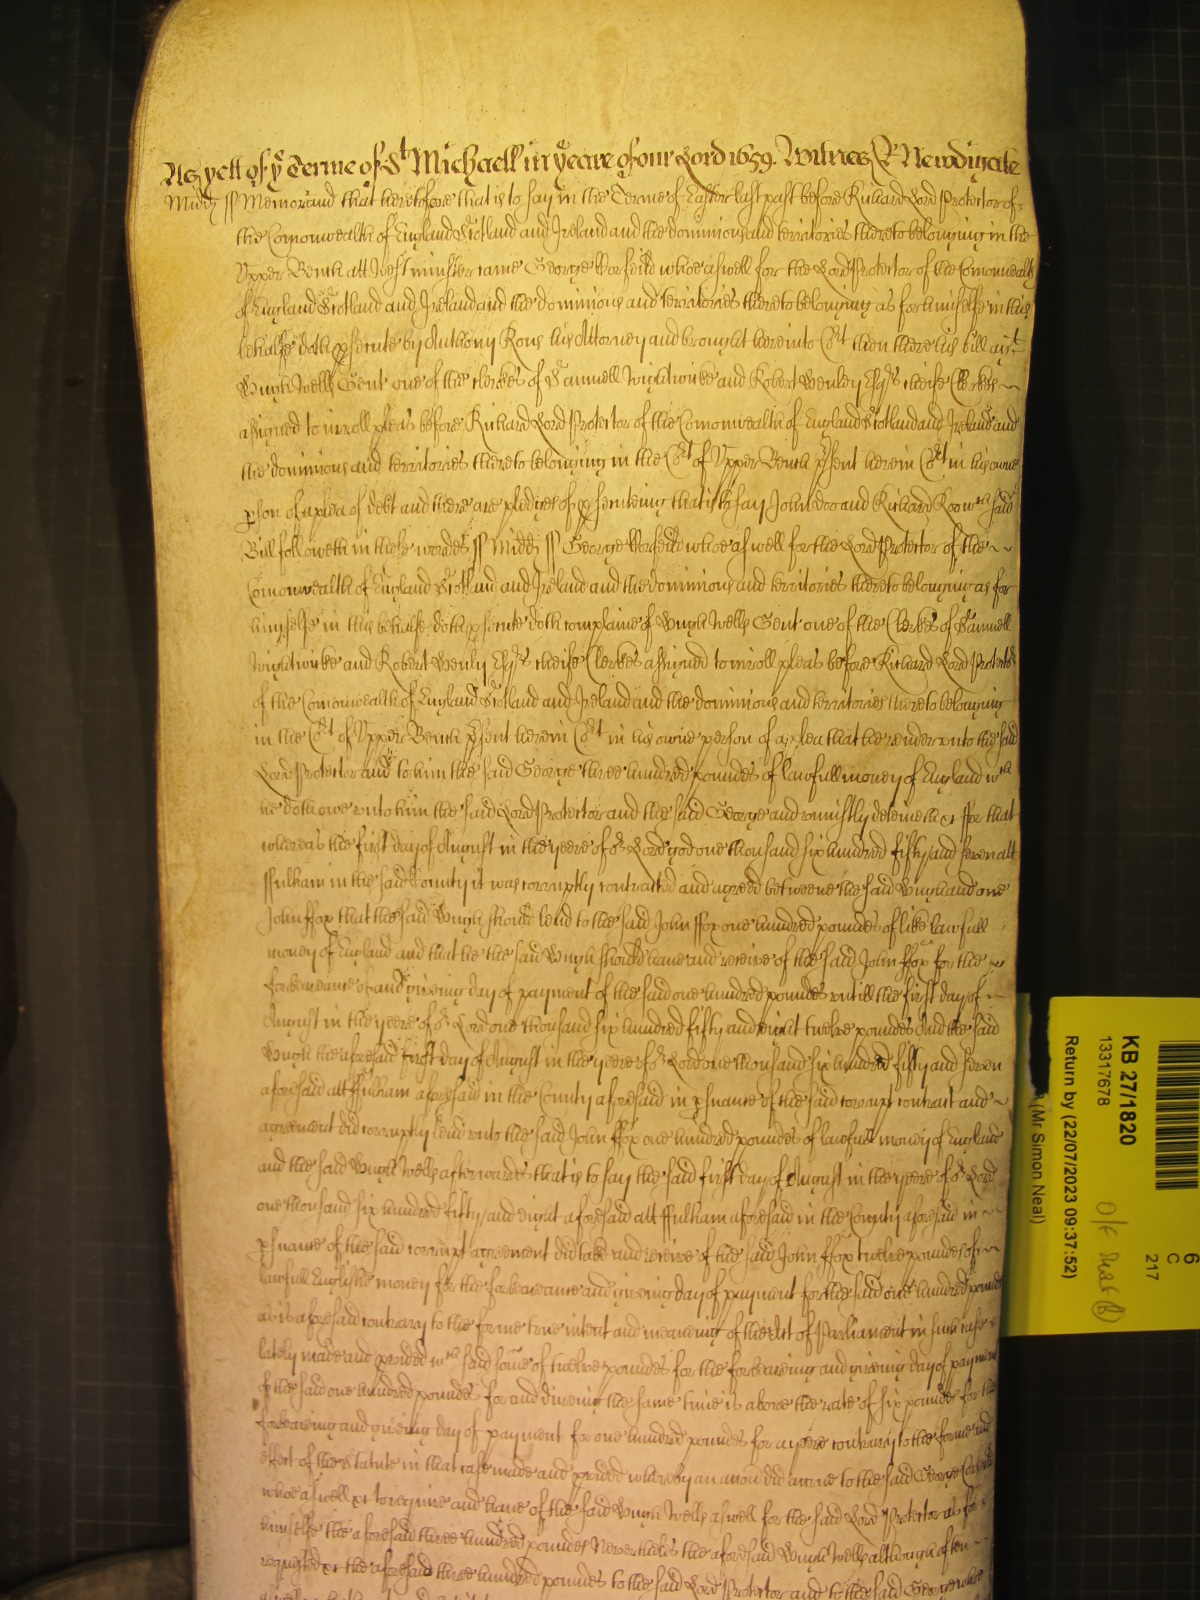 As yett of ye Terme of St Michaell in ye yeare of our Lord 1659. Witnes R Newdigate
Midd ss Memorand that heretofore that is to say in the Terme of Easter last past before Richard Lord Protector of
the Comonwealth of England Scotland and Ireland and the dominions and territories thereto belonging in the
Upper Bench att Westminster came George whoe aswell for the Lord Protector of the Comonwealth
of England Scotland and Ireland and the dominions and territories thereto belonging as for himselfe in this
behalfe doth psecute by Anthony Rous his Attorney and brought here into Cort then there his bill agt
Hugh Wells Gent one of the clerkes of Samuell Wightwicke and Robert Henley Esqrs cheife Clerkes
assigned to inroll pleas before Richard Lord Protector of the Comonwealth of England Scotland and Ireland and
the dominions and territories thereto belonging in the Cort of Upper Bench psent here in Cort in his owne
pson of a plea of debt and there are pledges of psecuteing that is to say John Doo and Richard Roo wch said
Bill followeth in these wordes ss Midd ss George whoe aswell for the Lord Protector of the
Comonwealth of England Scotland and Ireland and the dominions and territories thereto belonging as for
himselfe in this behalfe doth psecute doth complaine of Hugh Wells Gent one of the Clerkes of Samuell
Wightwicke and Robert Henly Esqrs cheife Clerkes assigned to inroll pleas before Richard Lord Protector
of the Comonwealth of England Scotland and Ireland and the dominions and territories thereto belonging
in the Cort of Upper Bench psent here in Cort in his owne person of a plea that he render unto the said
Lord Protector and to him the said George three hundred poundes of lawfull money of England wch
he doth owe unto him the said Lord Protector and the said George and uniustly deteineth &c ffor that
whereas the first day of August in the yeere of or Lord god one thousand six hundred fifty and seven att
ffulham in the said County it was corruptly contracted and agreed betweene the said Hugh and one
John ffox that the said Hugh should lend to the said John ffox one hundred poundes of like lawfull
money of England and that he the said Hugh should have and receive of the said John ffox for the
forbearance of and giveing day of payment of the said one hundred poundes untill the first day of
August in the yeere of or Lord one thousand six hundred fifty and eight twelve poundes And the said
Hugh the aforesaid first day of August in the yeere of or Lord one thousand six hundred fifty and seven
aforesaid att ffulham aforesaid in the County aforesaid in psuance of the said corrupt contract and
agreement did corruptly lend unto the said John ffox one hundred poundes of lawfull money of England
and the said Hugh Wells afterwardes that is to say the said first day of August in the yeere of or Lord
one thousand six hundred fifty and eight aforesaid att ffulham aforesaid in the County aforesaid in
psuance of the said corrupt agreement did take and receive of the said John ffox twelve poundes of
lawfull English money for the forbearance and giveing day of payment for the said one hundred poundes
as is aforesaid contrary to the forme true intent and meaning of the Act of Parliament in such case
lately made and provided wch said some of twelve poundes for the forbearing and giveing day of payment
of the said one hundred poundes for and dureing the same time is above the rate of six poundes for the
forbearing and giveing day of payment for one hundred poundes for a yeere contrary to the forme and
effect of the Statute in that case made and pvided whereby an accon did accrue to the said George
whoe aswell &c to require and have of the said Hugh Wells aswell for the said Lord Protector as for
himselfe the aforesaid three hundred poundes Neverthelesse the aforesaid Hugh Wells although often
requested &c the aforesaid three hundred poundes to the said Lord Protector and to the said George whoe
KB 27/1820
13317678
Return by (22/07/2023 09:37:52)
(Mr Simon Neal)
6
C
217